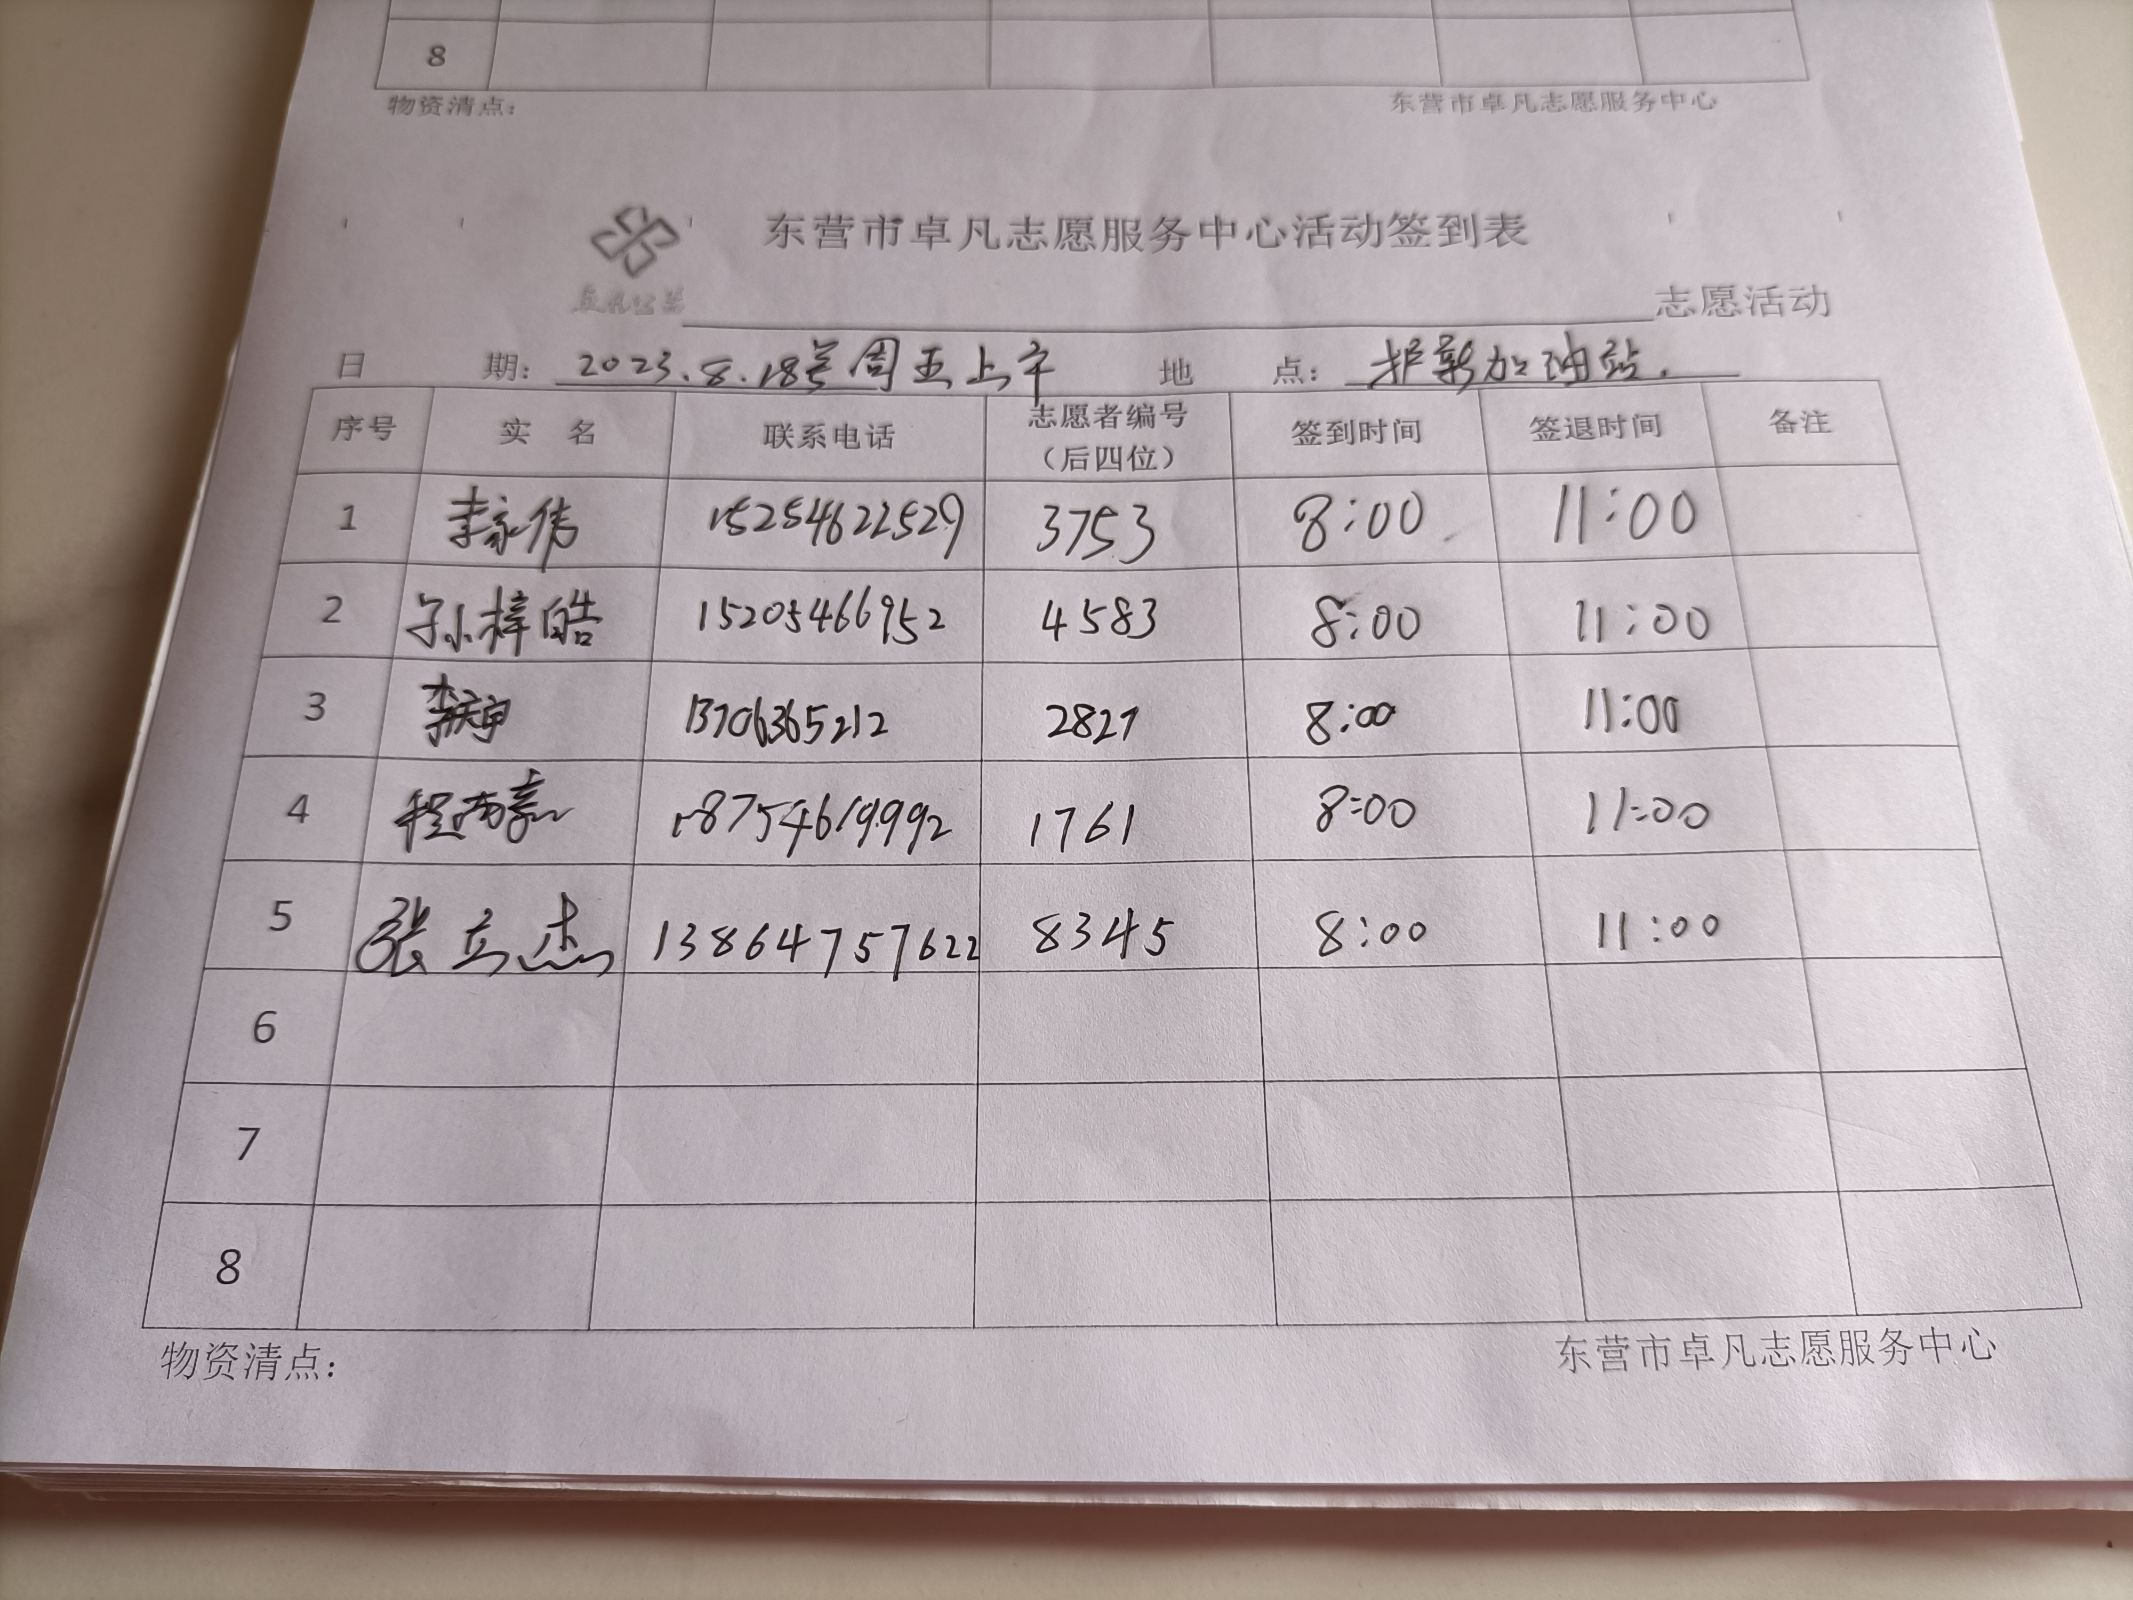 8
物资清点： 东营市卓凡志愿服务中心
东营市卓凡志愿服务中心活动签到表
卓凡公益 志愿活动
日 期： 2023.8.18号周五上午 地 点： 护新加油站.
序号 实 名 联系电话 志愿者编号（后四位） 签到时间 签退时间 备注
1 李家伟 15254622529 3753 8:00 11:00
2 孙梓皓 15205466952 4583 8:00 11:00
3 13706365212 2827 8:00 11:00
4 程 18754619992 1761 8:00 11:00
5 张立杰 13864757622 8345 8:00 11:00
6
7
8
物资清点： 东营市卓凡志愿服务中心